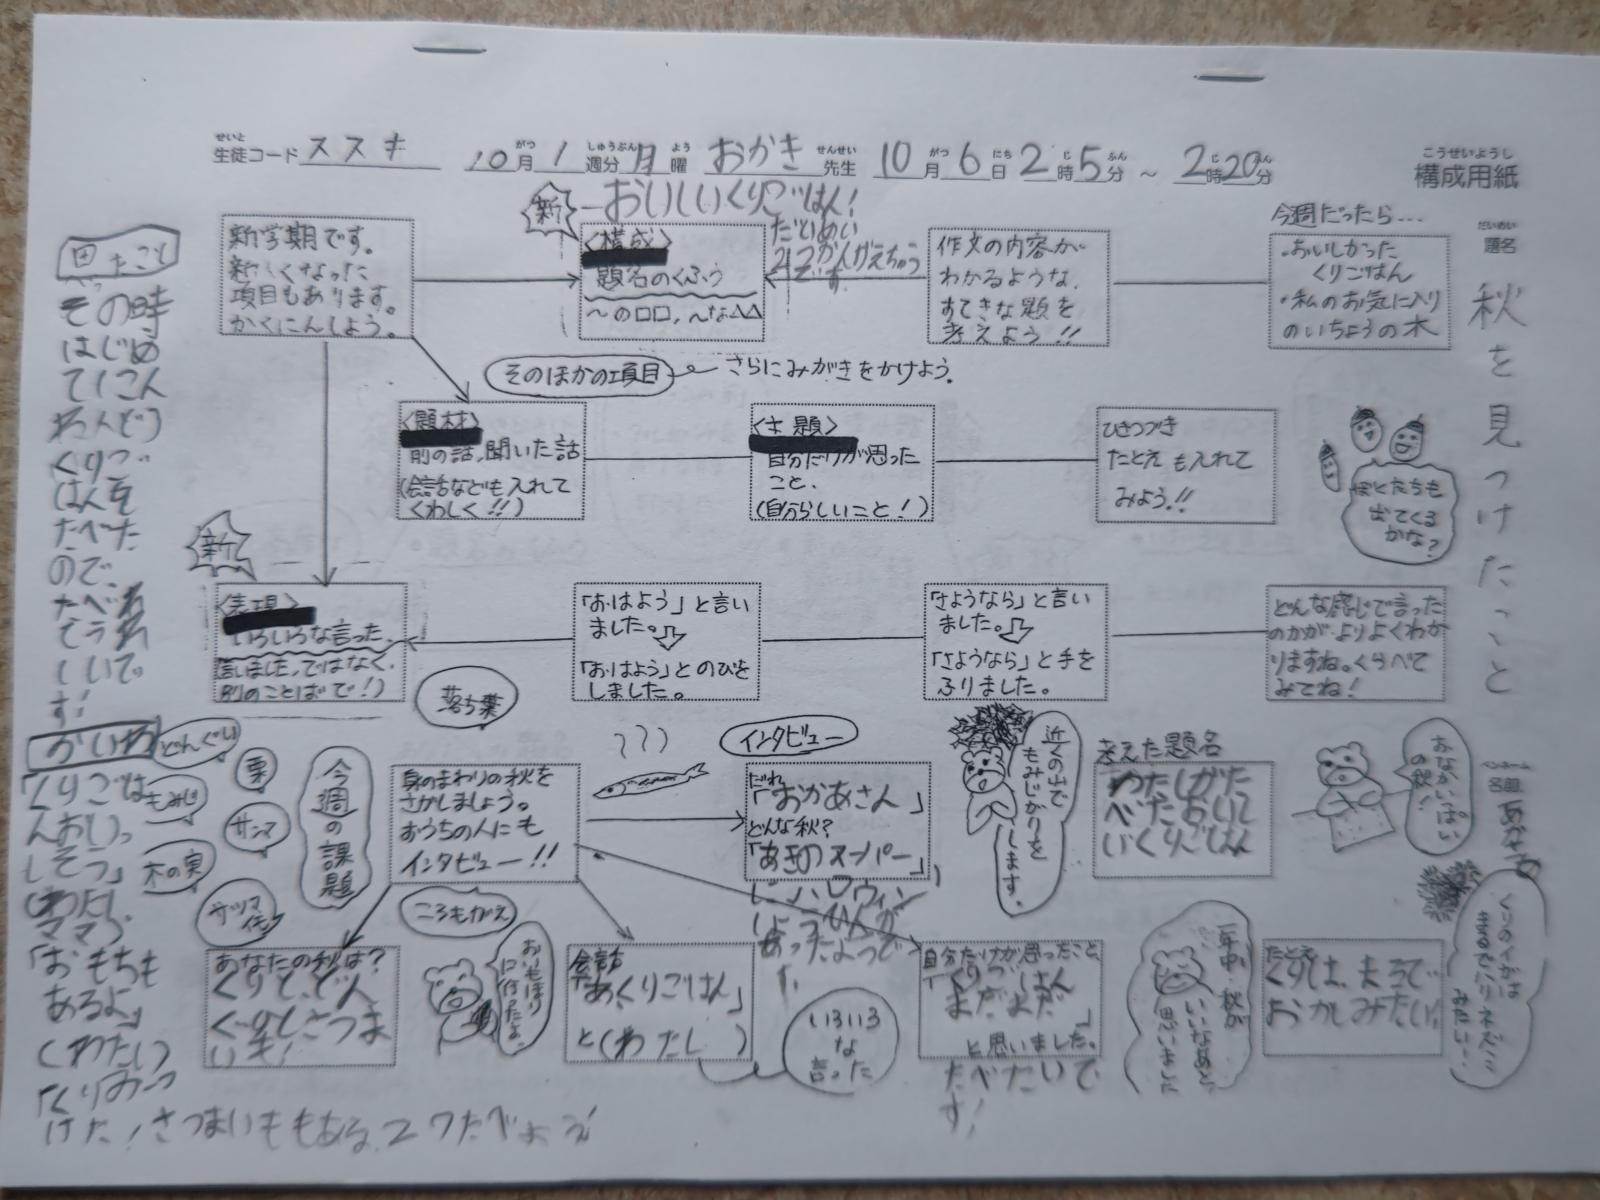 せいと
生徒コード ススキ
10月1週分 月曜 おかき先生 10月6日2時5分 ～ 2時20分
がつ しゅうぶん よう せんせい がつ にち じ ふん じ
こうせいようし
構成用紙
だいめい
題名
秋を見つけたこと
ペンネーム
名前
新
おいしいくりごはん!
だいめい
かんがえちゅう
です
新学期です。
新しくなった
項目もあります。
かくにんしよう。
〈構成〉
題名のくふう
～の口口,～な△△
作文の内容が
わかるような、
すてきな題を
考えよう!!
今週だったら...
・おいしかった
くりごはん
・私のお気に入り
のいちょうの木
そのほかの項目
さらにみがきをかけよう。
〈題材〉
前の話,聞いた話
(会話なども入れて
くわしく!!)
〈主題〉
自分だけが思った
こと、
(自分らしいこと!)
ひきつづき
たとえも入れて
みよう!!
ぼくたちも
出てくる
かな?
新
〈表現〉
いろいろな言った、
言いました,ではなく、
別のことばで!)
「おはよう」と言い
ました。
「おはよう」とのびを
しました。
「さようなら」と言い
ました。
「さようなら」と手を
ふりました。
どんな感じで言った
のかが、よりよくわか
りますね。くらべて
みてね!
落ち葉
どんぐり
栗
もみじ
サンマ
木の実
サツマ
今週の課題
身のまわりの秋を
さがしましょう。
おうちの人にも
インタビュー!!
ころもがえ
インタビュー
だれ
「おかあさん」
どんな秋?
「あきのスーパー」
にハロウィン
しょうひんが
あったよつで
近くの山で
もみじがりを
します。
考えた題名
わたしがた
べたおいし
いくりごはん
おなかいっぱい
の秋!
あなたの秋は?
くりと、どん
ぐりしさつま
いも!
おいもほり
に行ったよ。
会話
「あくりごはん」
と(わたし)
いろいろ
な
言った
自分だけが思ったこと、
「くりごはん
まだよだ」
と思いました。
たべたいで
す!
一年中、秋が
いいなあと、
思いました
たとえ
くりは、まるで
おかしみたい!
くりのイガは
まるでハリネズミ
みたい!
その時
はじめ
てにこん
くりご
はんを
たべた
ので、
かいわ
「くりごは
んおいっ
しそっ」
(わたし
ママ)
「おもちも
あるよ」
(わたし)
「くりみーつ
けた!さつまいももある。2つたべよう!